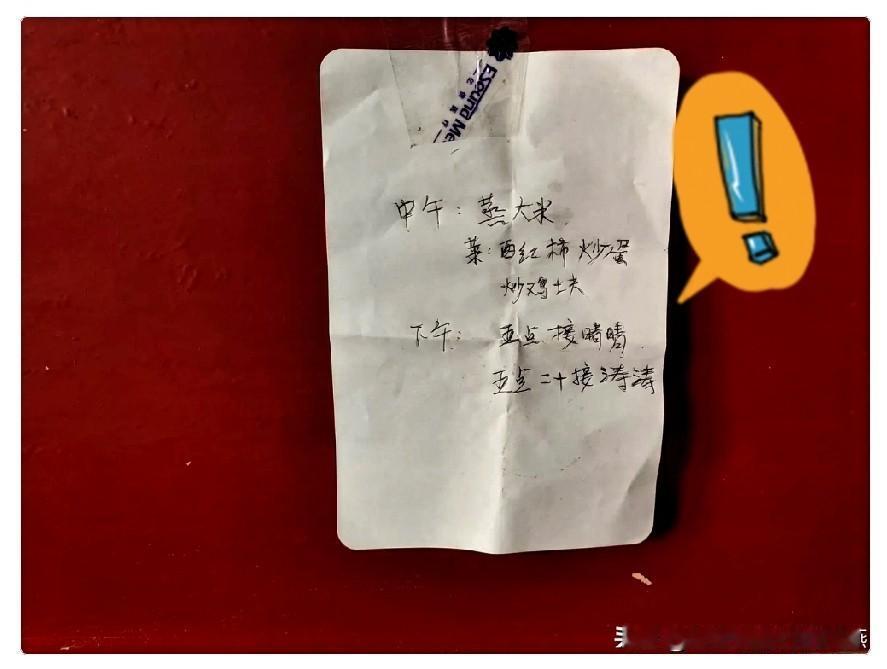 Eseund Me
中午：蒸大米
菜：西红柿炒蛋
炒鸡块
下午：五点接晴晴
五点二十接涛涛